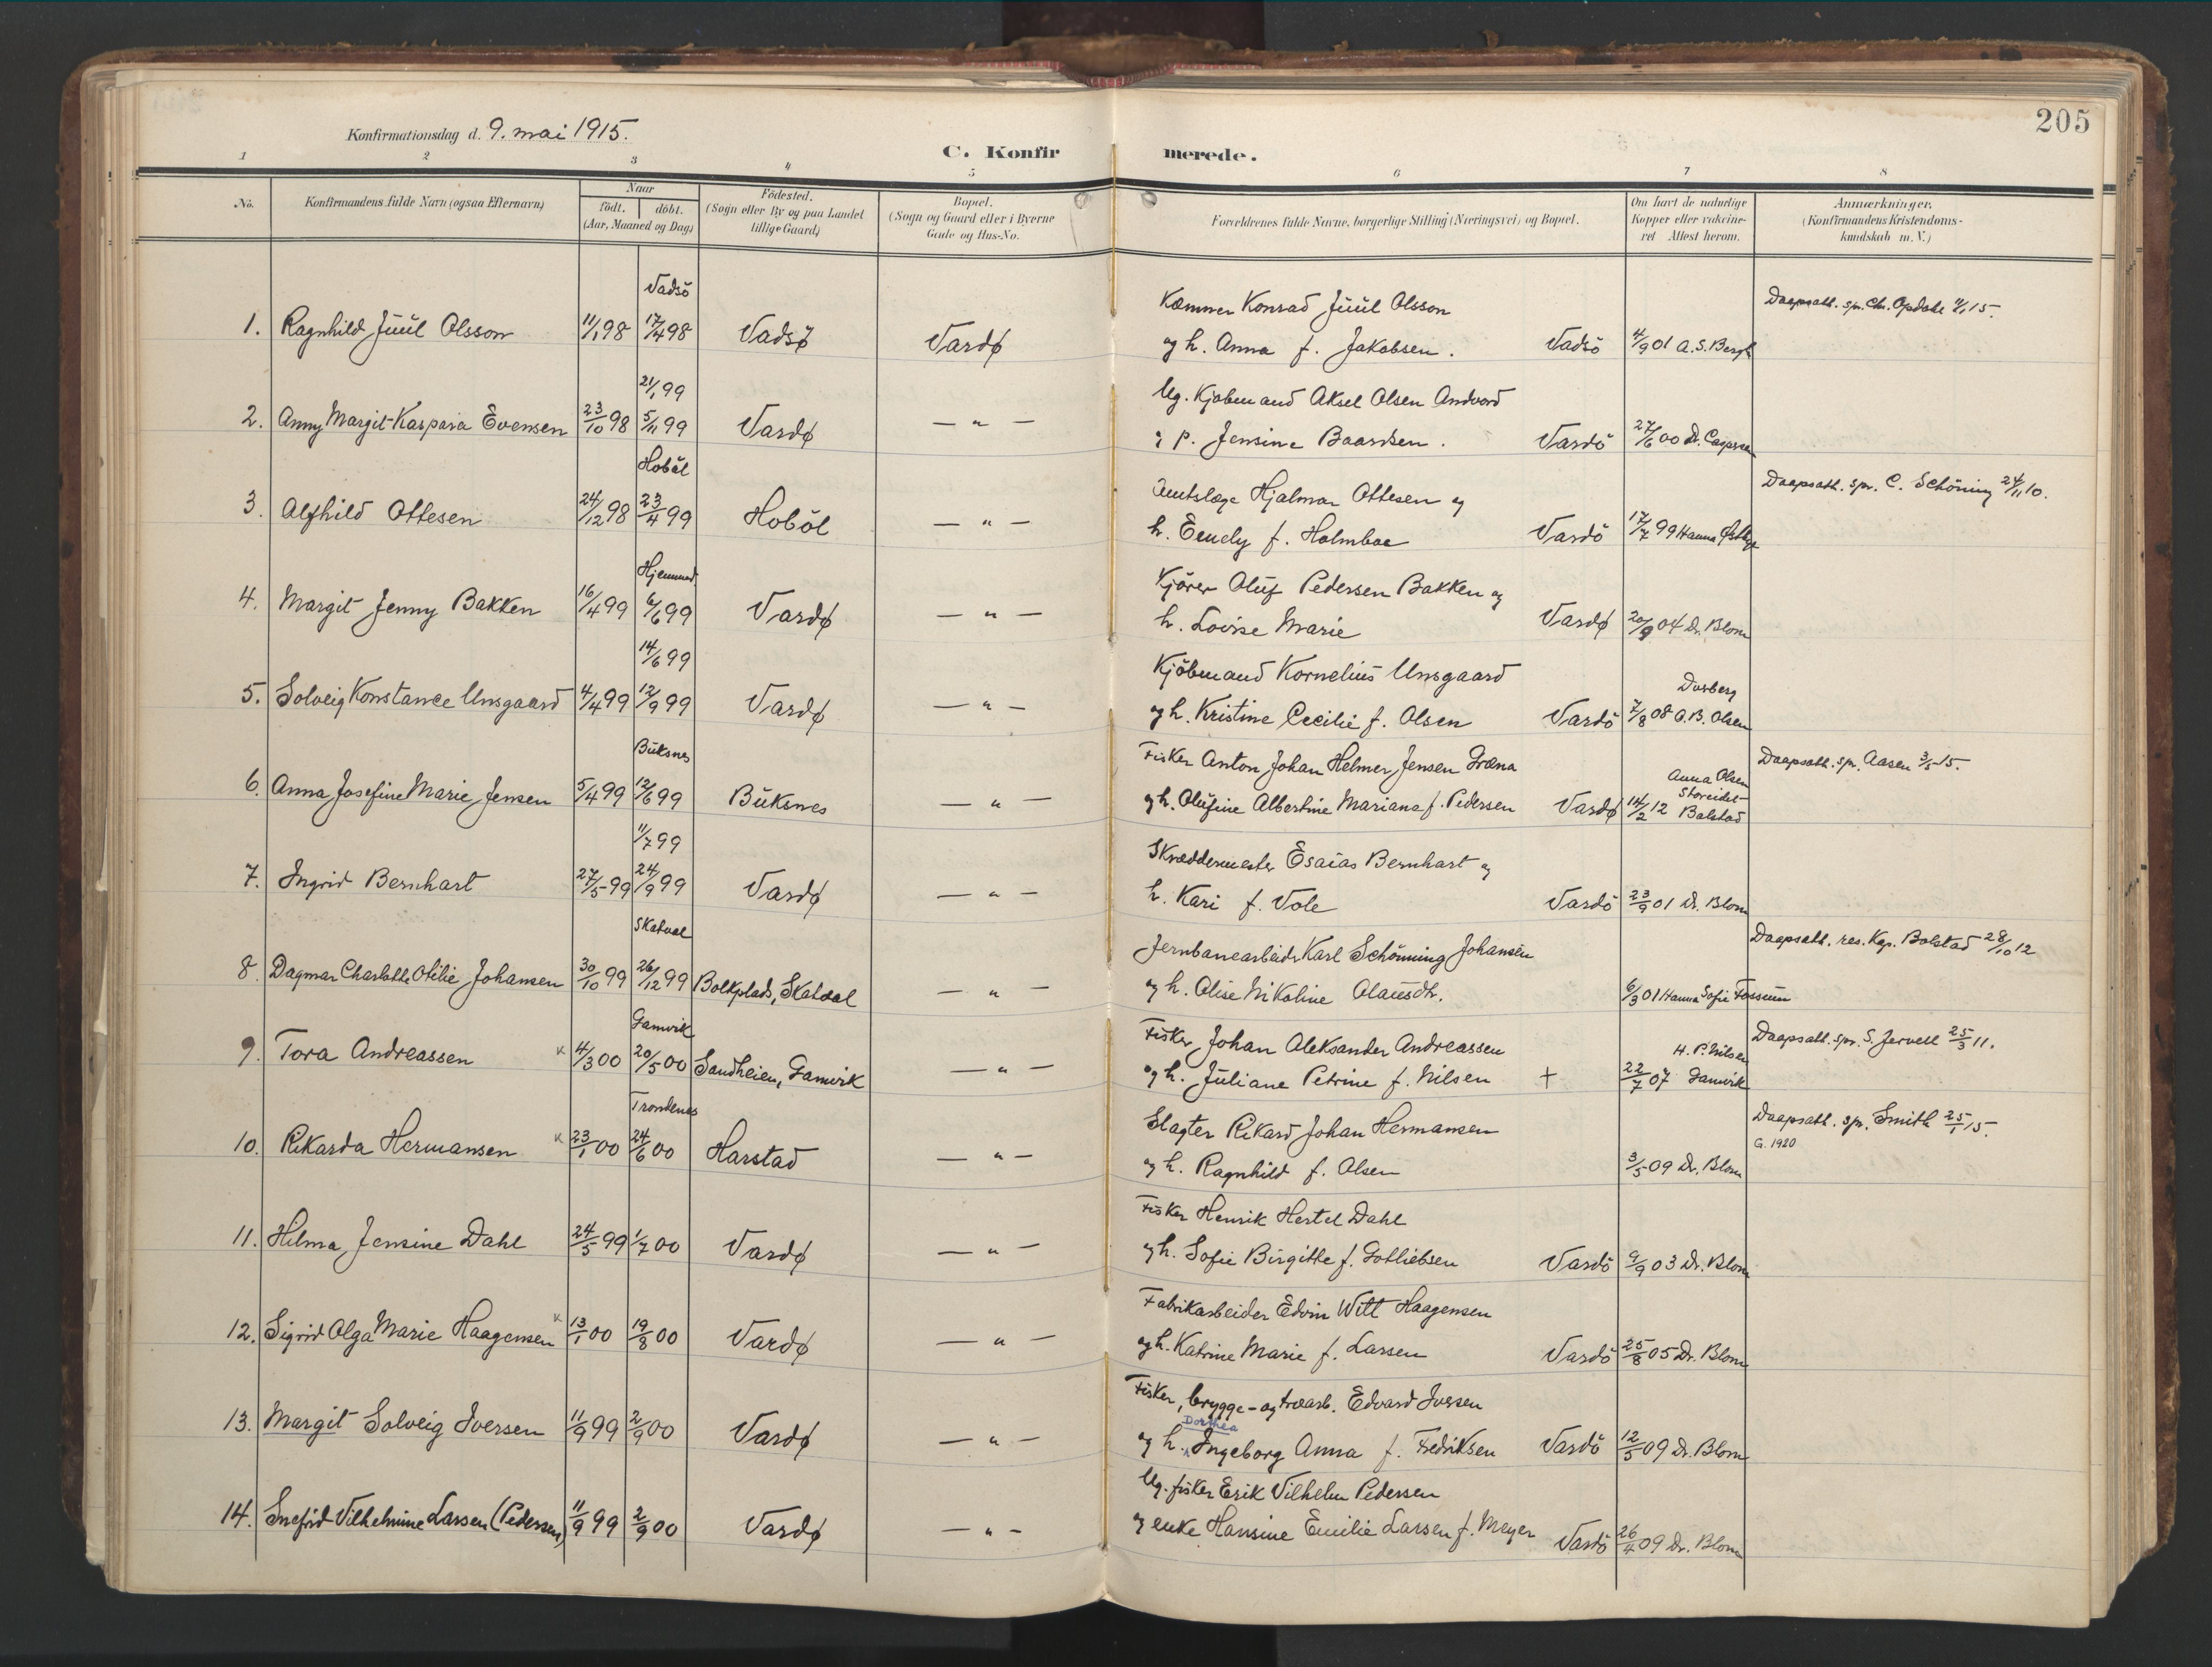 205
Konfirmationsdag d. 9. mai 1915.
C. Konfirmerede.
1 2 3 4 5 6 7 8
No.
Konfirmandens fulde Navn (ogsaa Efternavn)
Naar
födt. döbt.
(Aar, Maaned og Dag)
Födested.
(Sogn eller By og paa Landet
tillige Gaard)
Bopæl.
(Sogn og Gaard eller i Byerne
Gade og Hus-No.
Forældrenes fulde Navne, borgerlige Stilling (Næringsvei) og Bopæl.
Om havt de naturlige
Kopper eller vakcine-
ret Attest herom.
Anmærkninger.
(Konfirmandens Kristendoms-
kundskab m. V.)
Vadsö Kæmner Konrad Juul Olsson Daapsatt. spr. Chr. Opdahl 15.
1. Ragnhild Juul Olsson 11/1 98 17/4 98 Vadsø Vardø og h. Anna f. Jakobsen. Vadsö 4/9 01 A.S. Bergh
21/1 99 Ug. Kjøbmand Aksel Olsen Andvord
2. Anny Margit Kaspara Evensen 23/10 98 5/11 99 Vardø — " — & p. Jensine Baardsen. Vardö 27/6 00 Dr. Caspersen
Hoböl Amtslæge Hjalmar Ottesen og Daapsatt. spr. C. Schöning 24/11 10.
3. Alfhild Ottesen 24/12 98 23/4 99 Hoböl — " — h. Emely f. Holmboe Vardö 17/7 99 Hanna
Hjemmed Kjörer Oluf Pedersen Bakken og
4. Margit Jenny Bakken 16/4 99 6/6 99 Vardø — " — h. Lovise Marie Vardø 20/9 04 Dr. Blom
14/6 99 Kjöbmand Kornelius Unsgaard
5. Solveig Konstance Unsgaard 4/4 99 12/9 99 Vardø — " — og h. Kristine Cecilie f. Olsen Vardö 7/8 08 A.B. Olsen
Buksnes Fisker Anton Johan Helmer Jensen Græna Daapsatt. spr. Aasen 3/5 15.
6. Anna Josefine Marie Jensen 5/4 99 12/6 99 Buksnes — " — og h. Olufine Albertine Mariana f. Pedersen Vardø 14/2 12 Anna Olsen Storeidet Balstad
11/7 99 Skræddermester Esaias Bernhart og
7. Ingrid Bernhart 27/5 99 24/9 99 Vardø — " — h. Kari f. Vole Vardö 23/9 01 Dr. Blom
Skatval Jernbanearbeider Karl Schönning Johansen Daapsatt. res. Kap. Bolstad 28/10 12
8. Dagmar Charlotte Otilie Johansen 30/10 99 26/12 99 Bolkplads, Skatval — " — og h. Olise Nikoline Olausdtr. 6/3 01 Hanna Sofie Fossum
Gamvik Fisker Johan Aleksander Andreassen Daapsatt. spr. S. Jervell 25/3 11.
9. Tora Andreassen x 4/3 00 20/5 00 Sandheien, Gamvik — " — og h. Juliane Petrine f. Nilsen + 22/7 07 H.P. Nilsen Gamvik
Trondenes Slagter Rikard Johan Hermansen Daapsatt. spr. Smith 25/1 15.
G. 1920
10. Rikarda Hermansen x 23/1 00 24/6 00 Harstad — " — og h. Ragnhild f. Olsen 3/5 09 Dr. Blom
Fisker Henrik Hertel Dahl
11. Hilma Jensine Dahl 24/5 99 1/7 00 Vardø — " — og h. Sofie Birgitte f. Gotliebsen Vardö 9/9 03 Dr. Blom
Fabrikarbeider Edvin Witt Haagensen
12. Sigrid Olga Marie Haagensen x 13/1 00 19/8 00 Vardø — " — og h. Katrine Marie f. Larsen Vardö 25/8 05 Dr. Blom
Fisker, brygge- og træarb. Edvard Iversen
Dorthea
13. Margit Solveig Iversen 11/9 99 2/9 00 Vardø — " — og h. Ingeborg Anna f. Fredriksen Vardö 12/5 09 Dr. Blom
Ug. fisker Erik Vilhelm Pedersen
14. Snefrid Vilhelmine Larsen (Pedersen) 11/9 99 2/9 00 Vardø — " — og enke Hansine Emilie Larsen f. Meyer Vardö 26/4 09 Dr. Blom